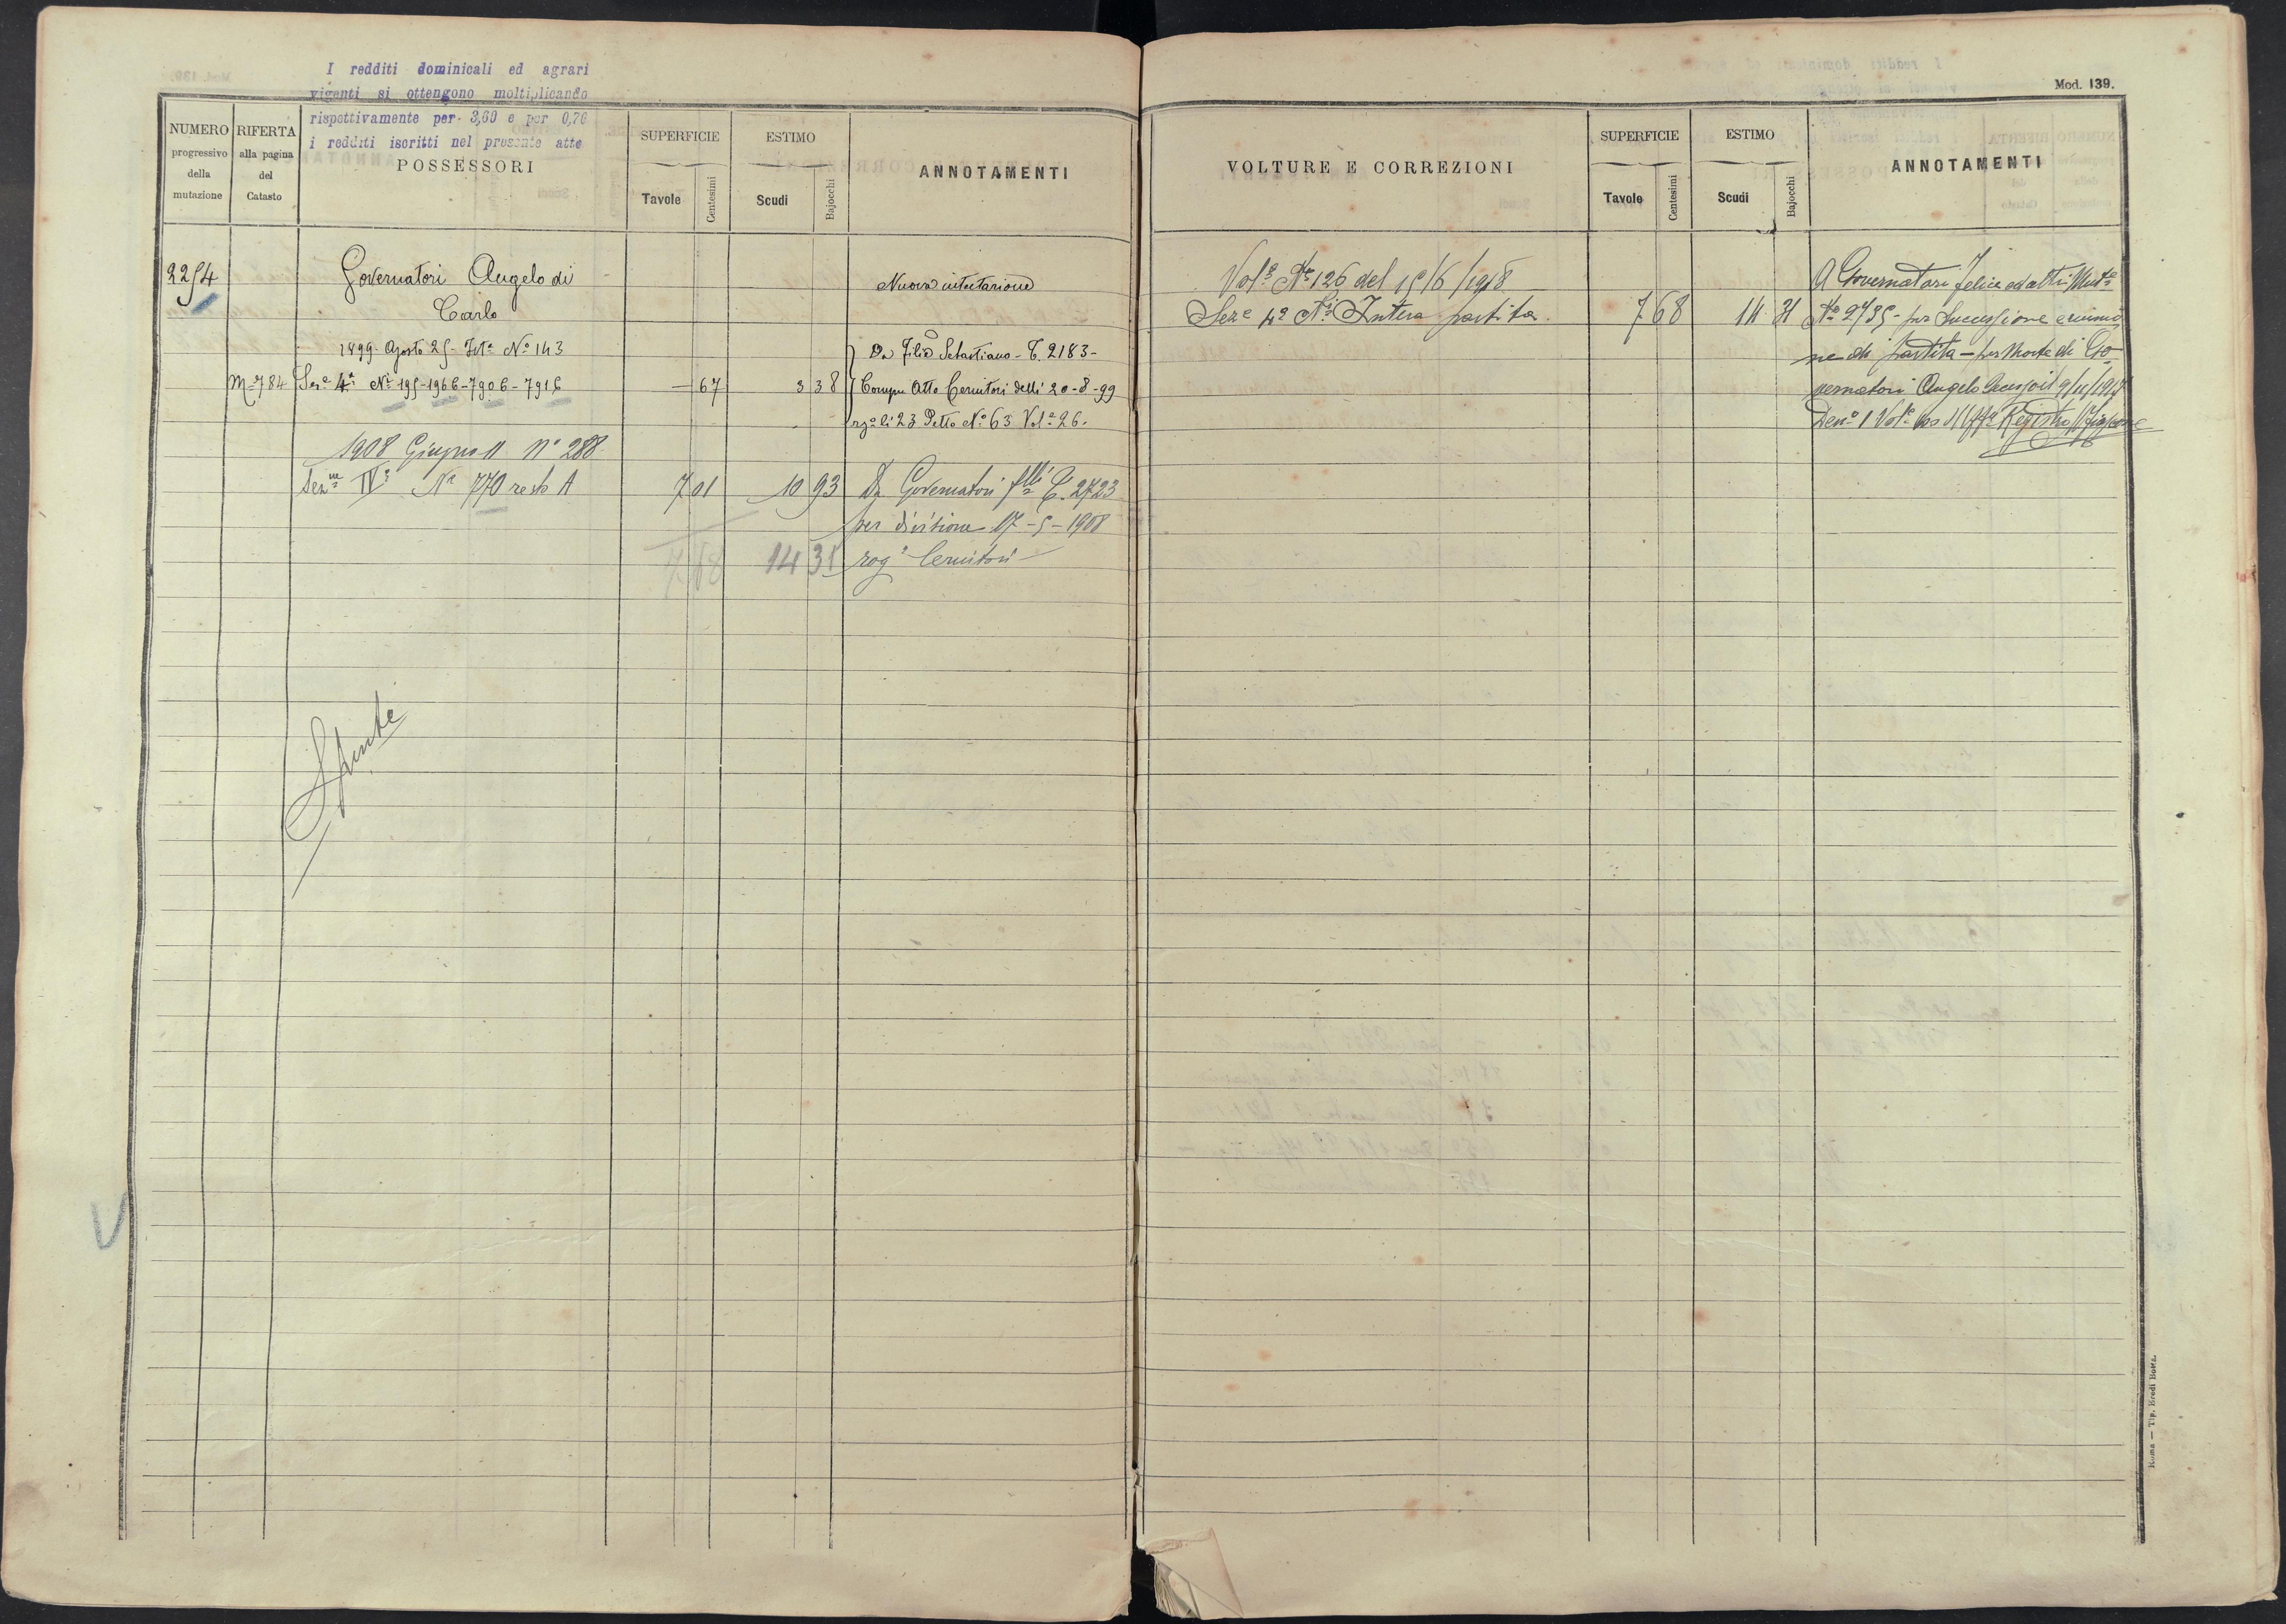 I redditi dominicali ed agrari
vigenti si ottengono moltiplicando
rispettivamente per 3,60 e per 0,70
i redditi iscritti nel presente atto
NUMERO progressivo della mutazione
RIFERTA alla pagina del Catasto
POSSESSORI
SUPERFICIE
Tavole Centesimi
ESTIMO
Scudi Bajocchi
ANNOTAMENTI
2254 Governatori Angelo di Nuova intestazione
Carlo
1899 Agosto 25 - Ist.a N.o 143 Da Filid Sebastiano - T. 2183 -
M=784 Sez.e 4a N.i 195-1966-7906-7916 — 67 3 38 Compra Atto Cernitori delli 20-8-99
li 23 Detto N.o 63 Vol.e 26.
1908 Giugno 11 N.o 288
Sez.ne IVa N.o 770 resto A 7 01 10 93 Da Governatori f.lli T. 2723
per divisione 17-5-1908
7 68 14 31 rog.o Cernitori
Spenta
Mod. 139.
VOLTURE E CORREZIONI
SUPERFICIE
Tavole Centesimi
ESTIMO
Scudi Bajocchi
ANNOTAMENTI
Vol.e N.o 126 del 15/6/1918 A Governatori Felice ed altri Mut.e
Sez.e 4a N.i Intera partita. 7 68 14 31 N.o 2735 - per Successione e riunio
ne di partita - per Morte di Go-
vernatori Angelo
Den.a 1 Vol.e Registro
Roma — Tip. Eredi Botta.